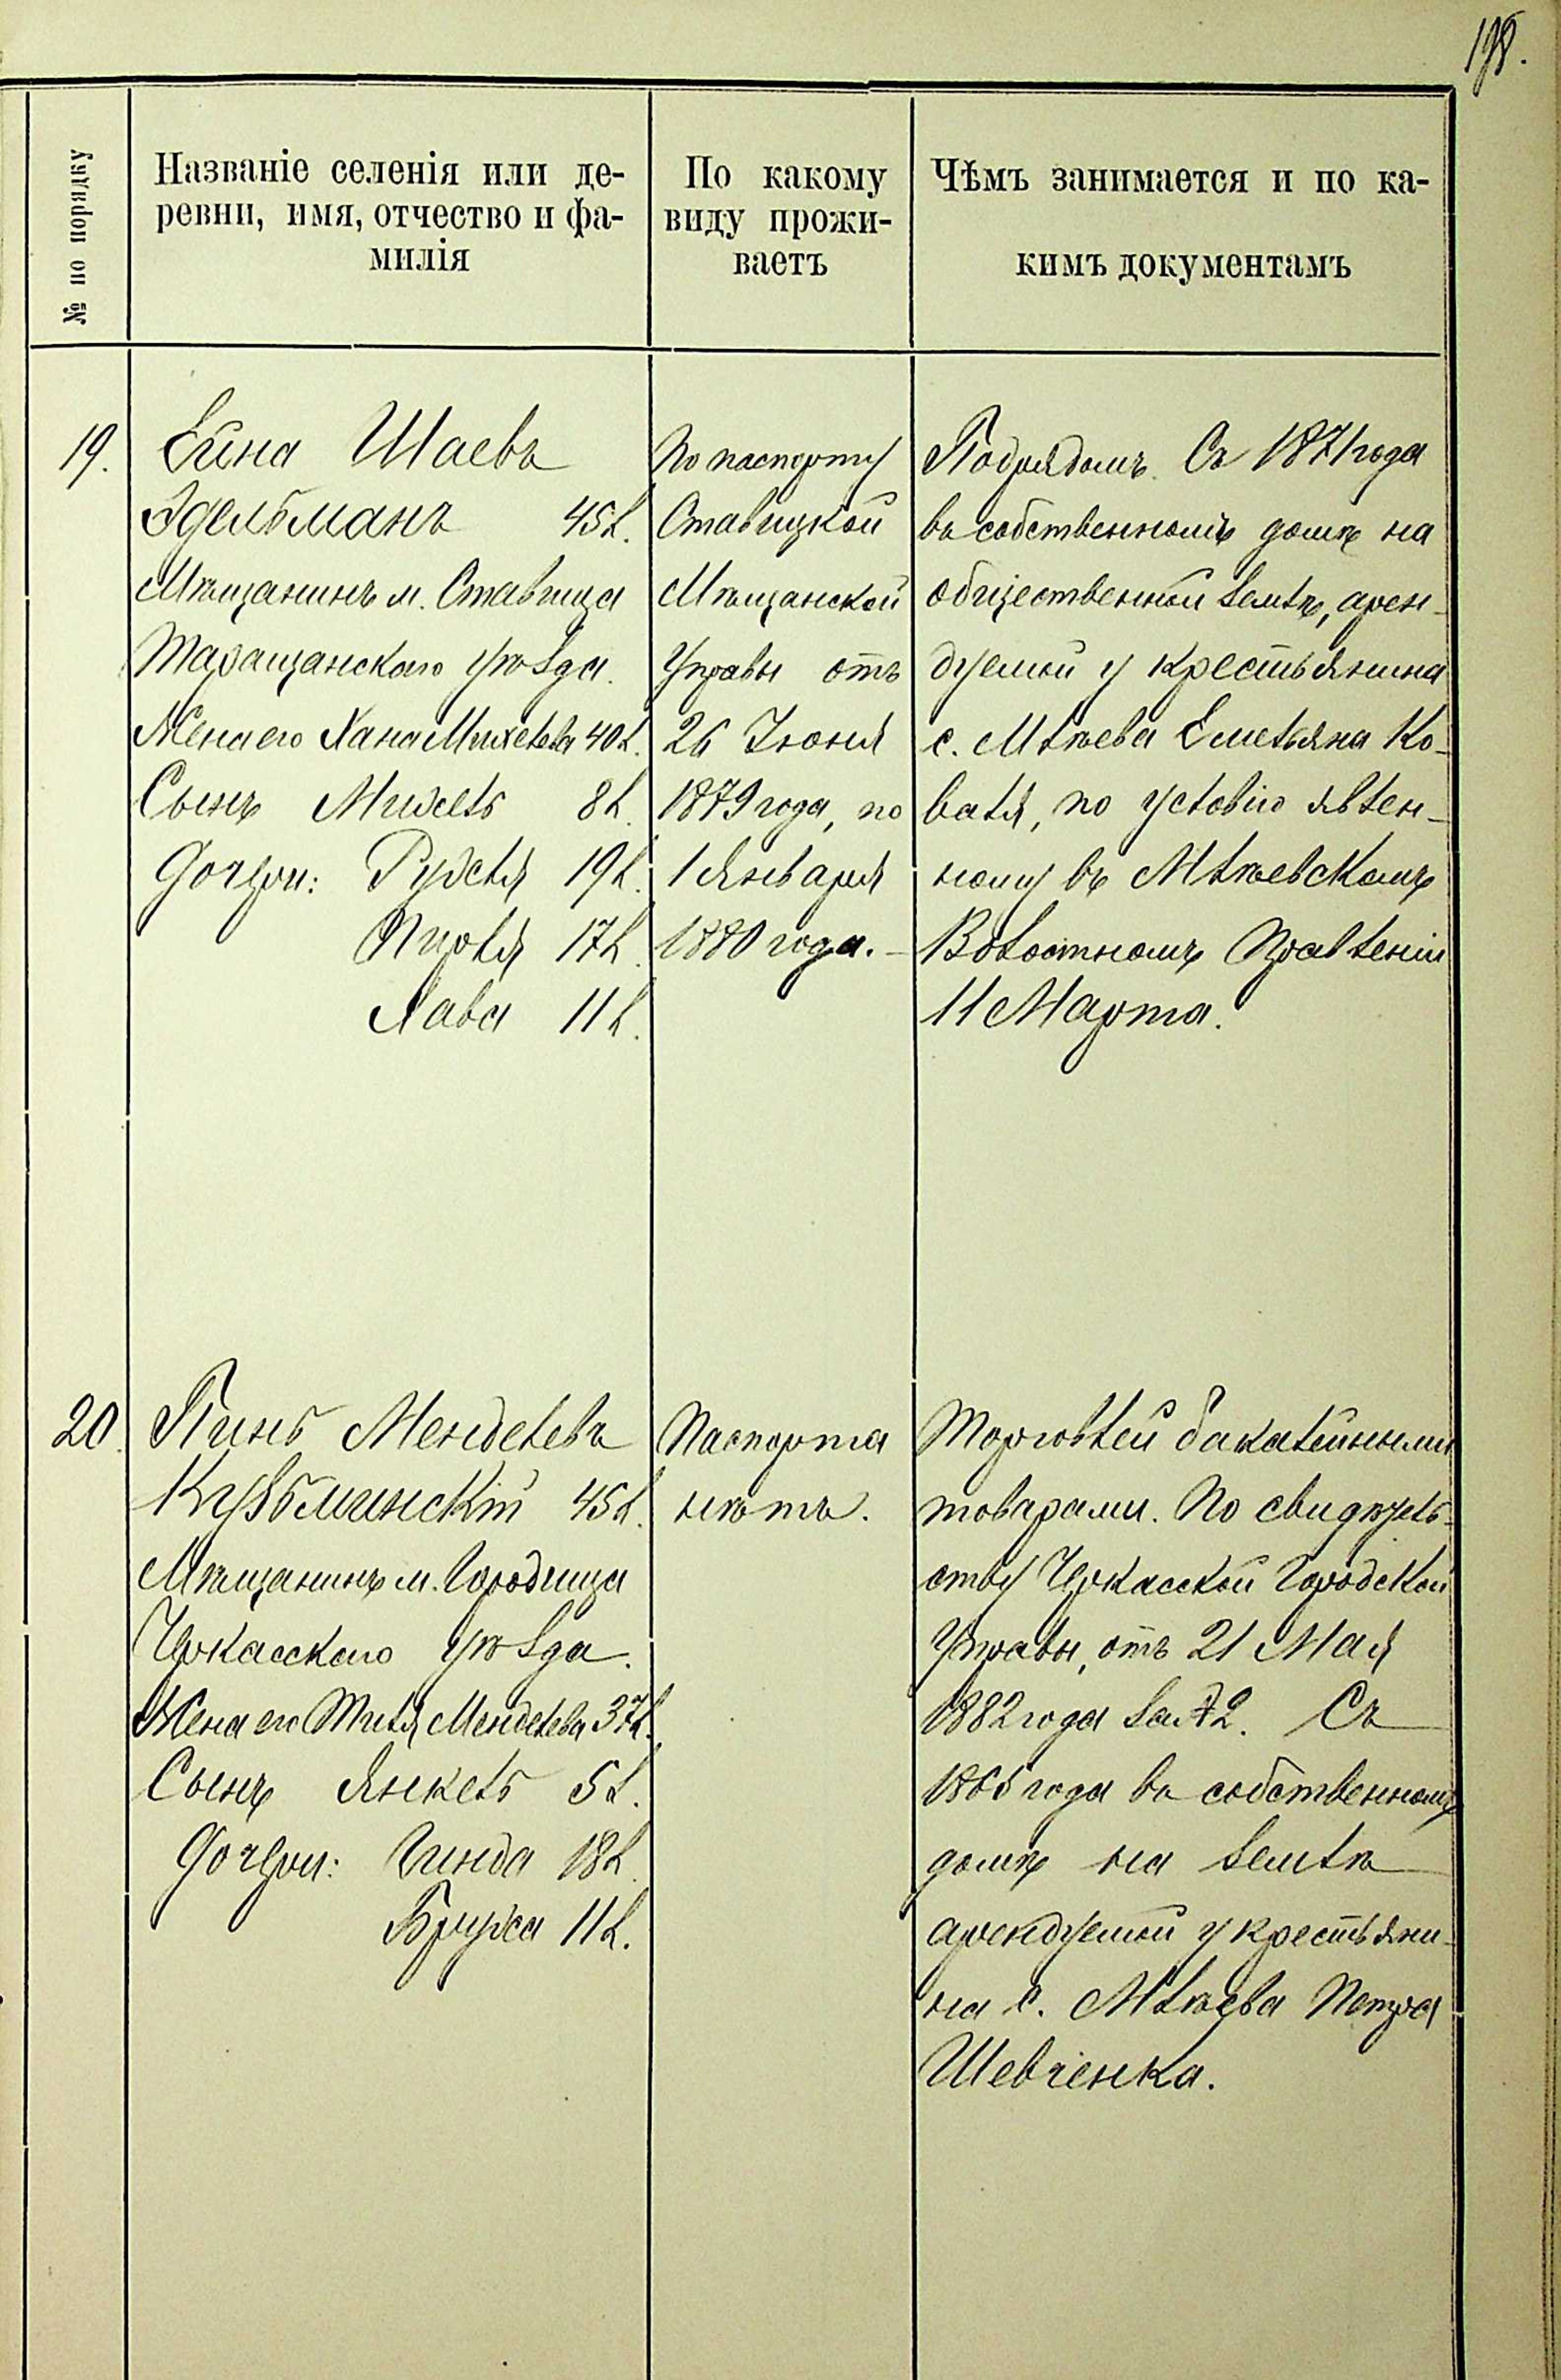 198.
№ по порядку
Названіе селенія или де-
ревни, имя, отчество и фа-
милія
По какому
виду прожи-
ваетъ
Чѣмъ занимается и по ка-
кимъ документамъ
19.
Ейна Шаевъ
Эдельманъ 45 л.
Мѣщанинъ м. Ставища
Таращанскаго уѣзда.
Жена его Хана Михелева 40 л.
Сынъ Михель 8 л.
Дочери: Рухля 19 л.
Пирля 17 л.
Хава 11 л.
По паспорту
Ставицкой
Мѣщанской
Управы отъ
26 Іюня
1879 года, по
1 Января
1880 года. –
Подрядомъ. Съ 1871 года
въ собственномъ домѣ на
общественной землѣ, арен-
дуемой у крестьянина
с. Млѣева Емельяна Ко-
валя, по условію явлен-
ному въ Млѣевскомъ
Волостномъ Правленіи
11 Марта.
20.
Пинь Менделевъ
Кузьминскій 45 л.
Мѣщанинъ м. Городища
Черкасскаго уѣзда.
Жена его Тиля Менделева 37 л.
Сынъ Янкель 5 л.
Дочери: Гинда 18 л.
Бруха 11 л.
Паспорта
нѣтъ.
Торговлей бакалейными
товарами. По свидѣтель-
ству Черкасской Городской
Управы, отъ 21 Мая
1882 года за № 2. Съ
1865 года въ собственномъ
домѣ на землѣ
арендуемой у крестьяни-
на с. Млѣева Петра
Шевченка.